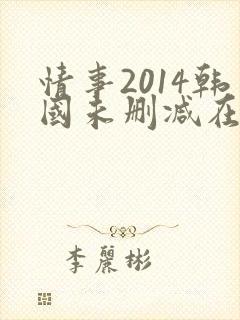 情事2014韩
國未删减在
李麗彬